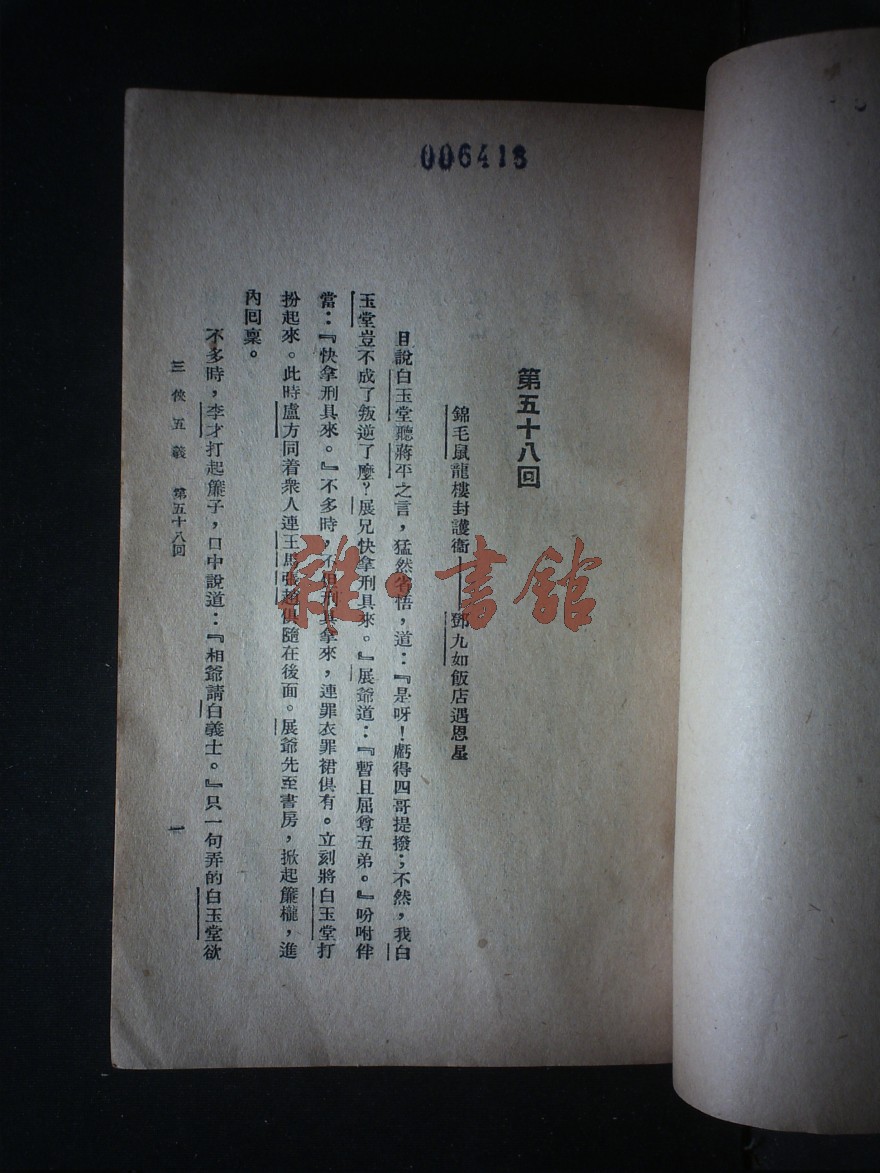 006413
第五十八回
錦毛鼠龍樓封護衞——鄧九如飯店遇恩星
且說白玉堂聽蔣平之言，猛然省悟，道：『是呀！虧得四哥提撥；不然，我白
玉堂豈不成了叛逆了麼？展兄快拿刑具來。』展爺道：『暫且屈尊五弟。』吩咐伴
當：『快拿刑具來。』不多時，不但刑具拿來，連罪衣罪裙俱有。立刻將白玉堂打
扮起來。此時盧方同着衆人連王馬張趙俱隨在後面。展爺先至書房，掀起簾櫳，進
內回稟。
不多時，李才打起簾子，口中說道：『相爺請白義士。』只一句弄的白玉堂欲
三俠五義 第五十八回
一
雜·書館